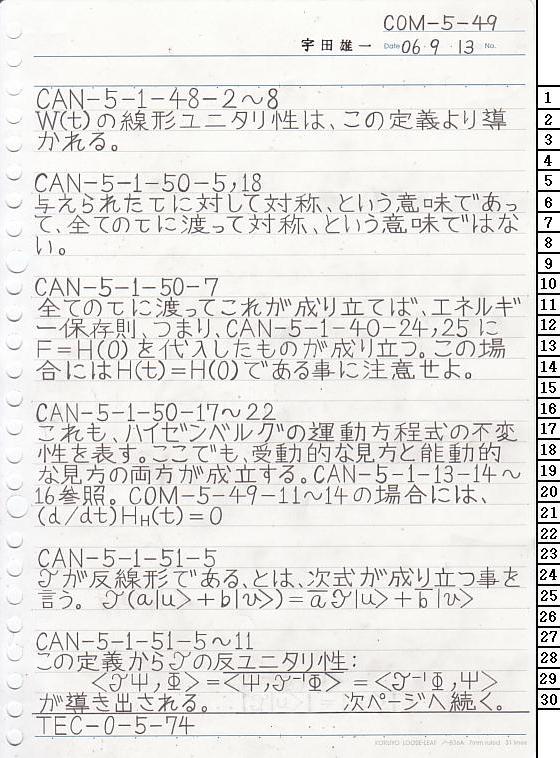 COM-5-49
宇田雄一 Date 06・9・13 No.
CAN-5-1-48-2～8
W(t)の線形ユニタリ性は、この定義より導
かれる。
CAN-5-1-50-5,18
与えられたτに対して対称、という意味であっ
て、全てのτに渡って対称、という意味ではな
い。
CAN-5-1-50-7
全てのτに渡ってこれが成り立てば、エネルギ
ー保存則、つまり、CAN-5-1-40-24,25に
F=H(0)を代入したものが成り立つ。この場
合にはH(t)=H(0)である事に注意せよ。
CAN-5-1-50-17～22
これも、ハイゼンベルグの運動方程式の不変
性を表す。ここでも、受動的な見方と能動的
な見方の両方が成立する。CAN-5-1-13-14～
16参照。COM-5-49-11～14の場合には、
(d/dt)H_H(t)=0
CAN-5-1-51-5
𝒯が反線形である、とは、次式が成り立つ事を
言う。 𝒯(a|u>+b|v>)=a̅𝒯|u>+b̅𝒯|v>
CAN-5-1-51-5～11
この定義から𝒯の反ユニタリ性:
<𝒯Ψ,Φ>=<Ψ,𝒯⁻¹Φ>̅=<𝒯⁻¹Φ,Ψ>
が導き出される。 次ページへ続く。
TEC-0-5-74
KOKUYO LOOSE-LEAF ノ-836A 7mm ruled 31 lines
1
2
3
4
5
6
7
8
9
10
11
12
13
14
15
16
17
18
19
20
21
22
23
24
25
26
27
28
29
30